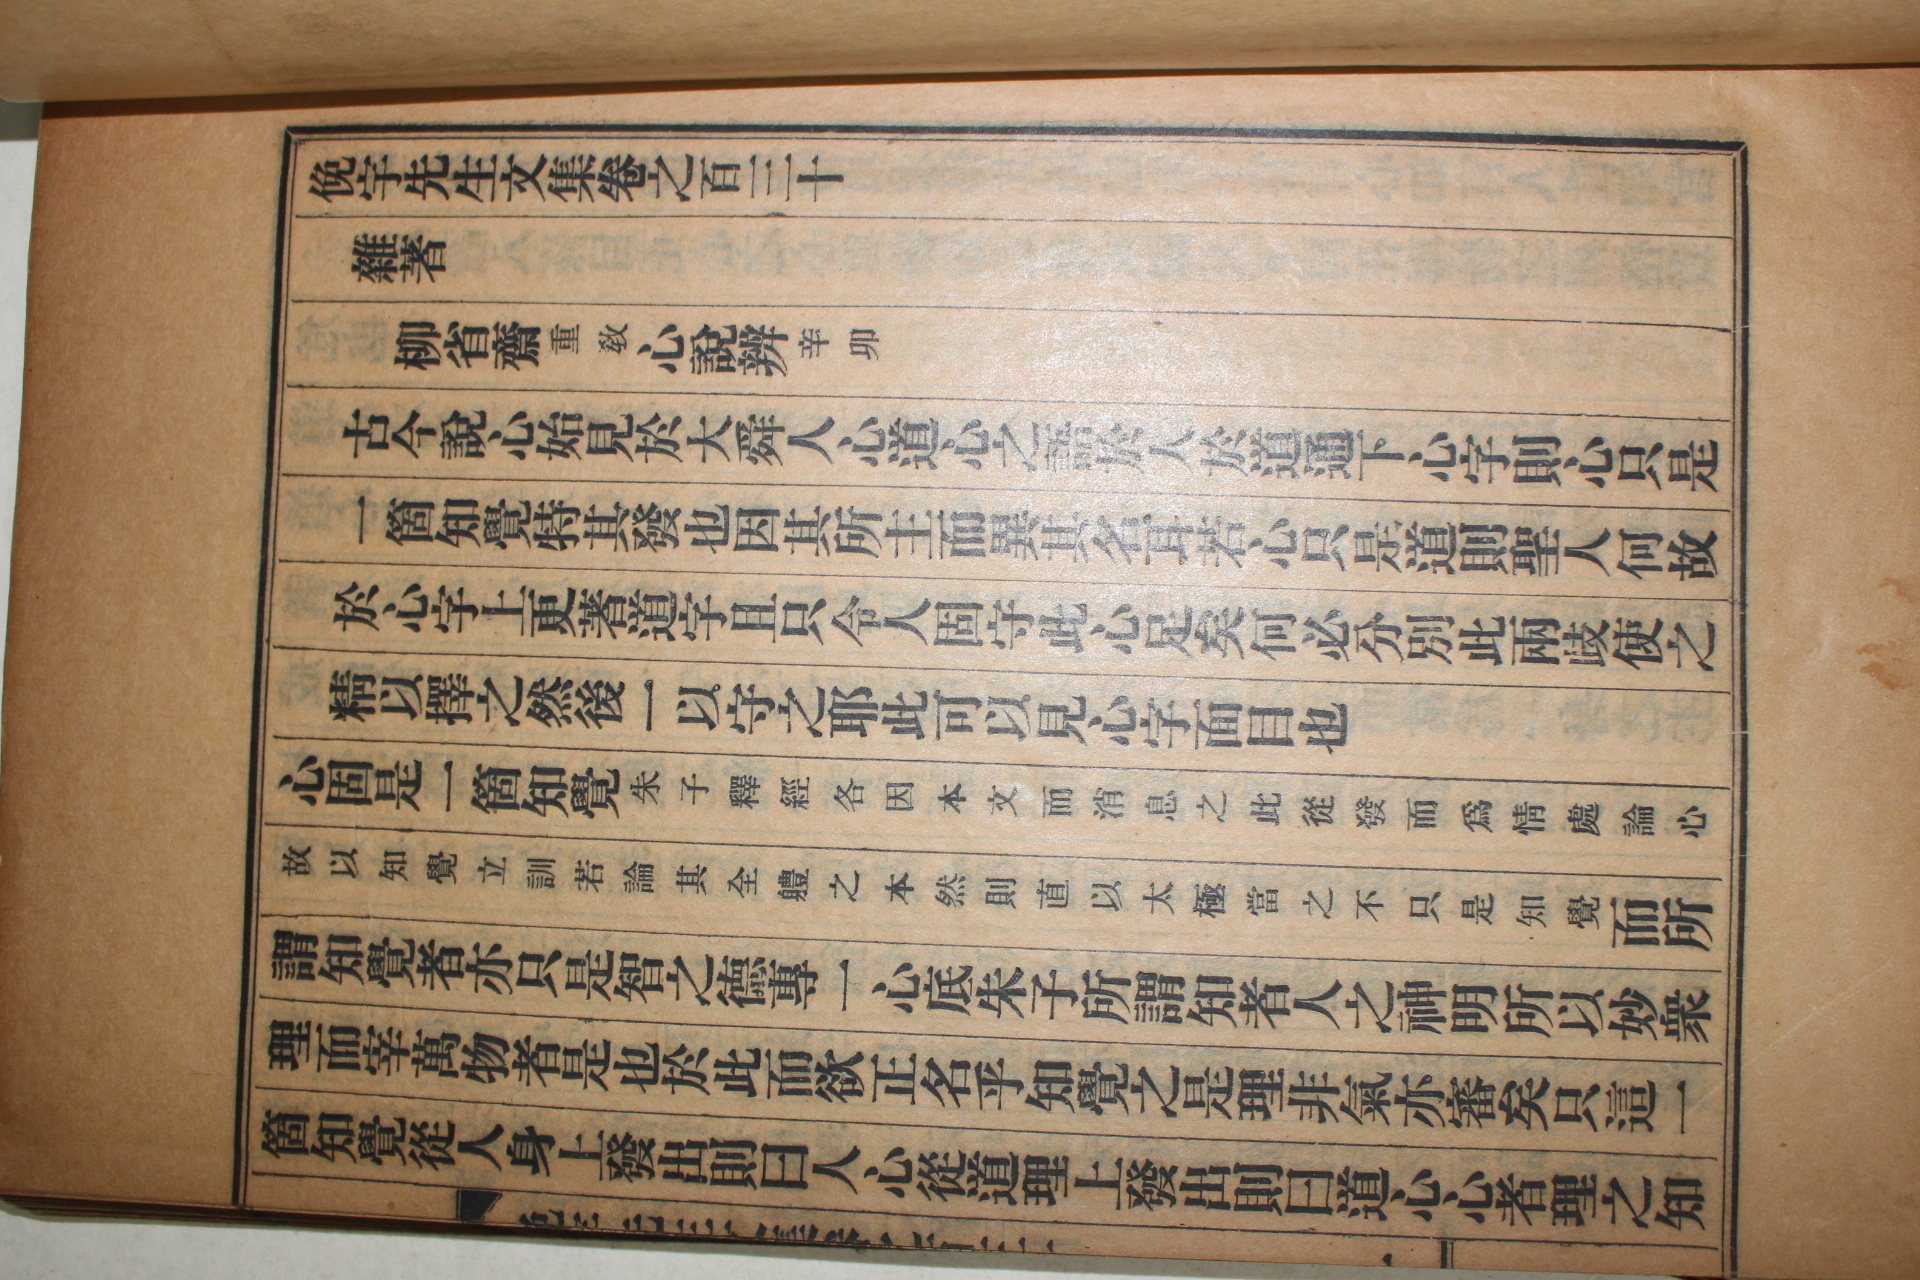 俛宇先生文集卷之百三十
雜著
柳省齋重敎心說辨辛卯
古今說心始見於大舜人心道心之語於人於道通下心字則心只是
一箇知覺特其發也因其所主而異其名耳若心只是道則聖人何故
於心字上更著道字且只令人固守此心足矣何必分別此兩歧使之
精以擇之然後一以守之耶此可以見心字面目也
心固是一箇知覺朱子釋經各因本文而消息之此從發而爲情處論心
故以知覺立訓若論其全軆之本然則直以太極當之不只是知覺而所
謂知覺者亦只是智之德專一心底朱子所謂知者人之神明所以妙衆
理而宰萬物者是也於此而欲正名乎知覺之是理非氣亦審矣只這一
箇知覺從人身上發出則曰人心從道理上發出則曰道心心者理之知
俛宇先生文集卷之百三十
一